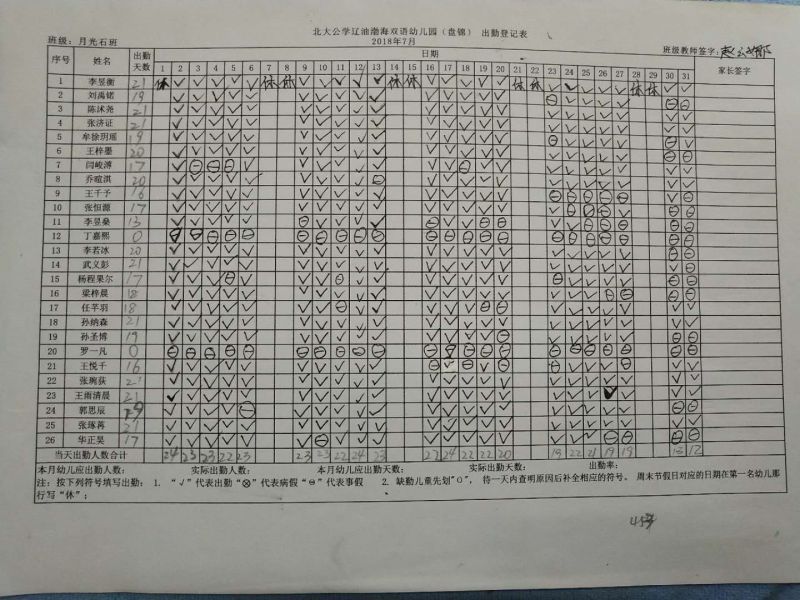 北大公学辽油渤海双语幼儿园（盘锦） 出勤登记表
班级：月光石班 2018年7月 班级教师签字：
序号 姓名 出勤天数 日期 家长签字
1 2 3 4 5 6 7 8 9 10 11 12 13 14 15 16 17 18 19 20 21 22 23 24 25 26 27 28 29 30 31
1 李昱衡 21 休 休 休 休 休 休 休 休 休
2 刘禹锘 19
3 陈沭尧 21
4 张济证 21
5 牟徐玥瑶 19
6 王梓墨 20
7 闫峻溥 17
8 乔暄淇 20
9 王千予 16
10 张恒源 17
11 李昱燊 13
12 丁嘉熙 0
13 李若冰 20
14 武义彭 21
15 杨程果尔 17
16 梁梓晨 18
17 任芊羽 18
18 孙纳森 21
19 孙圣博 19
20 罗一凡 0
21 王悦千 16
22 张琬荻 21
23 王雨清晨 21
24 郭思辰 19
25 张琢苒 21
26 华正昊 17
当天出勤人数合计 24 23 23 22 23 23 23 22 24 23 22 24 22 22 20 19 22 21 19 19 13 12
本月幼儿应出勤人数： 实际出勤人数： 本月幼儿应出勤天数： 实际出勤天数： 出勤率：
注：按下列符号填写出勤： 1. “√”代表出勤“⊗”代表病假“⊖”代表事假 2. 缺勤儿童先划"O"， 待一天内查明原因后补全相应的符号。 周末节假日对应的日期在第一名幼儿那
行写“休”；